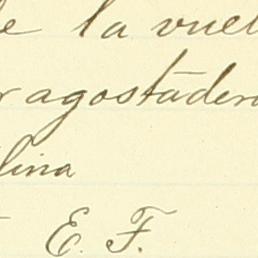 e la vuel
r agostader
lina
E. F.